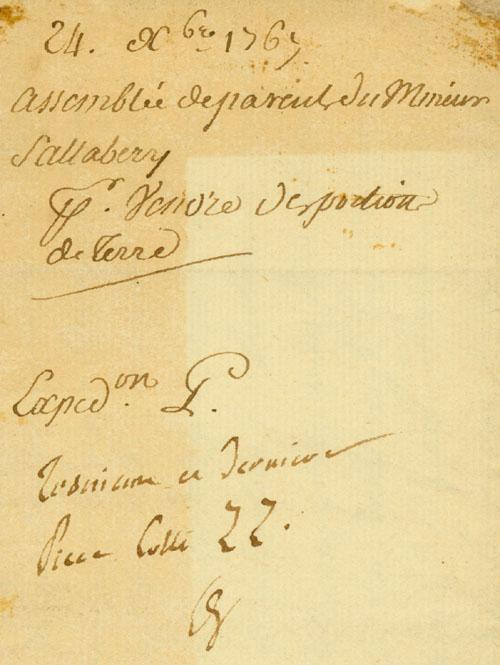 24. Xbre 1767
Assemblée de parent du Mineur
Sallabery
Pr. Vendre des portion
de Terre
Expedon. P.
Troisieme et derniere
Piece Cotté ZZ.